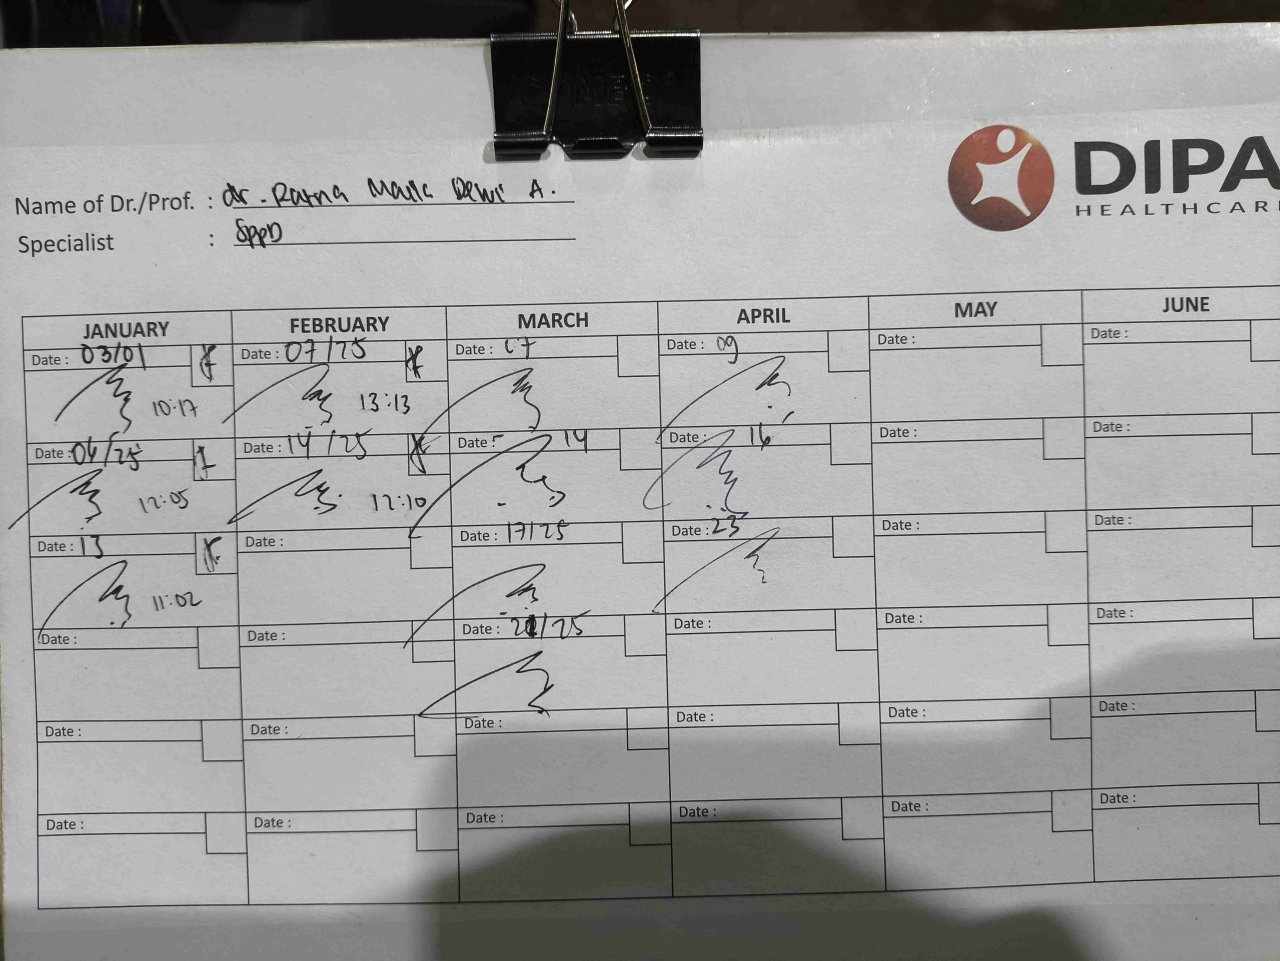 DIPA
HEALTHCAR
Name of Dr./Prof. : dr. Ratna Maila Dewi A.
Specialist : SppD
JANUARY FEBRUARY MARCH APRIL MAY JUNE
Date : 03/01 Date : 07/25 Date : 07 Date : 09 Date : Date :
10:17 13:13
Date : 06/25 Date : 14/25 Date : 14 Date : 16 Date : Date :
12:05 12:10
Date : 13 Date : Date : 17/25 Date : 23 Date : Date :
11:02
Date : Date : Date : 21/25 Date : Date : Date :
Date : Date : Date : Date : Date : Date :
Date : Date : Date : Date : Date : Date :